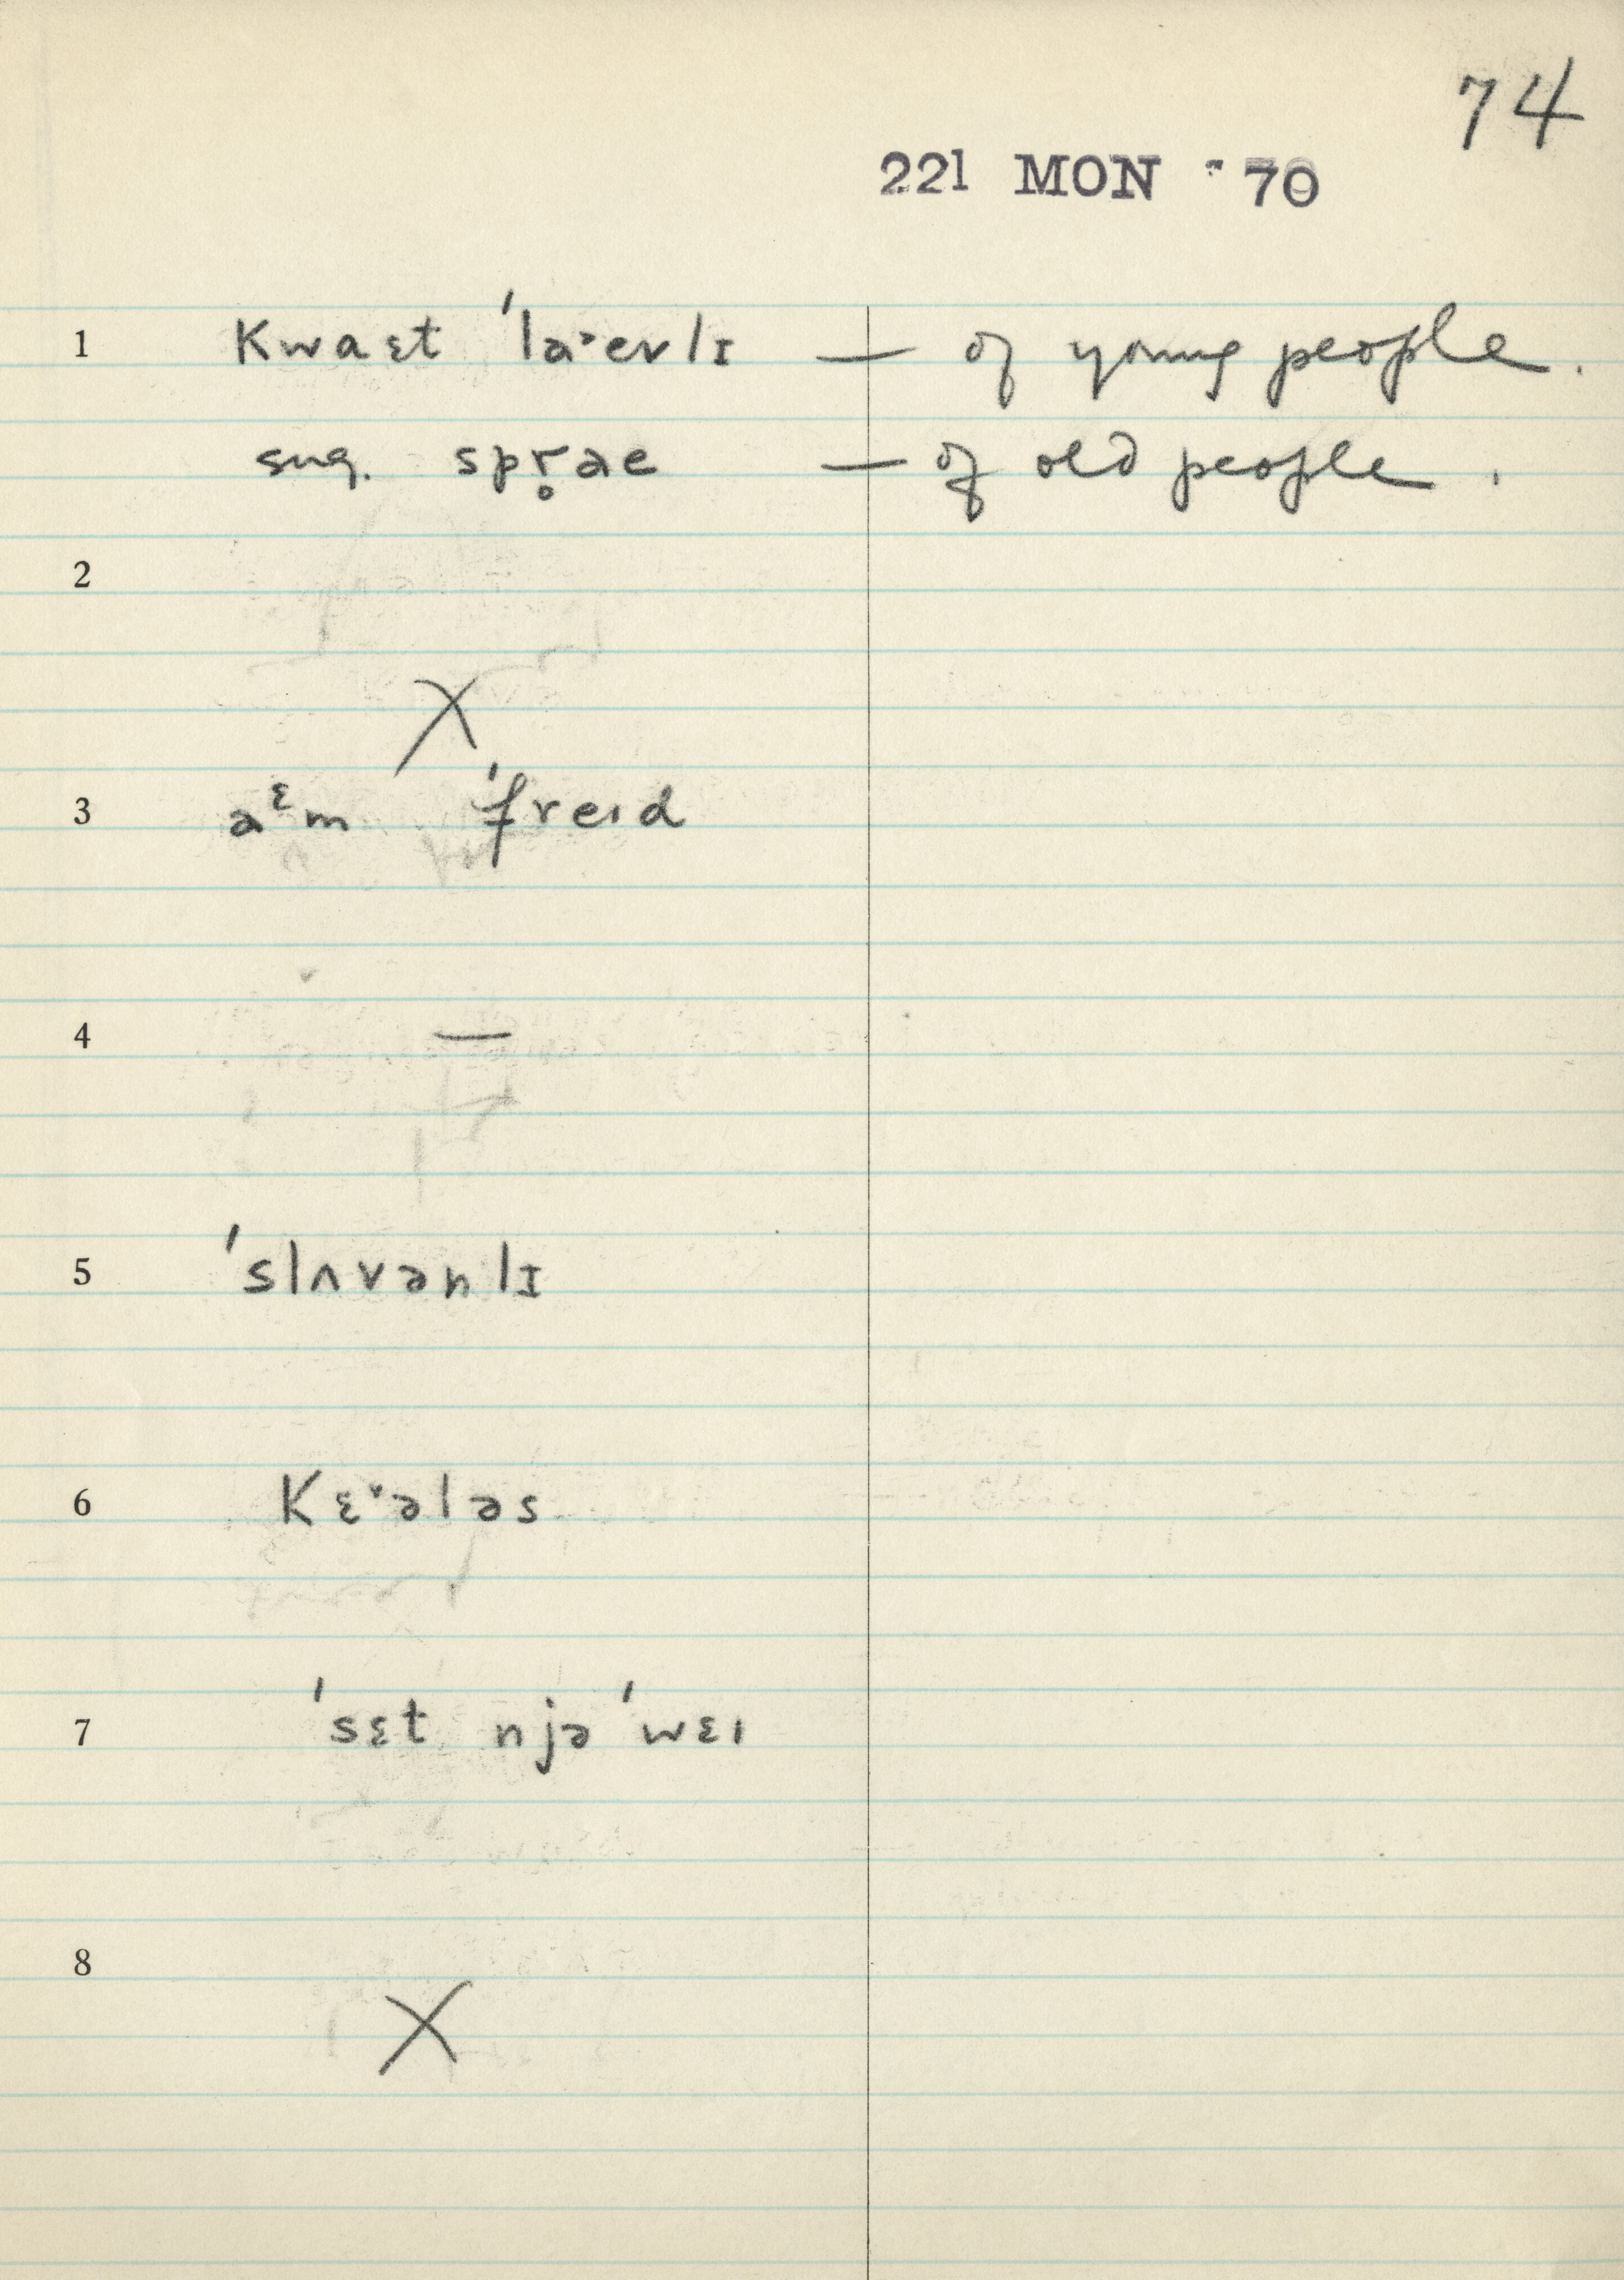 74
221 MON 70
1 kwaɛt ˈlaˑevlɪ — of young people.
sug. spr̥ae — of old people.
2
X
3 aᵋm ˈfreɪd
4 —
5 ˈslʌvənlɪ
6 kɛˑələs
7 ˈsɛt njə ˈwɛɪ
8
X